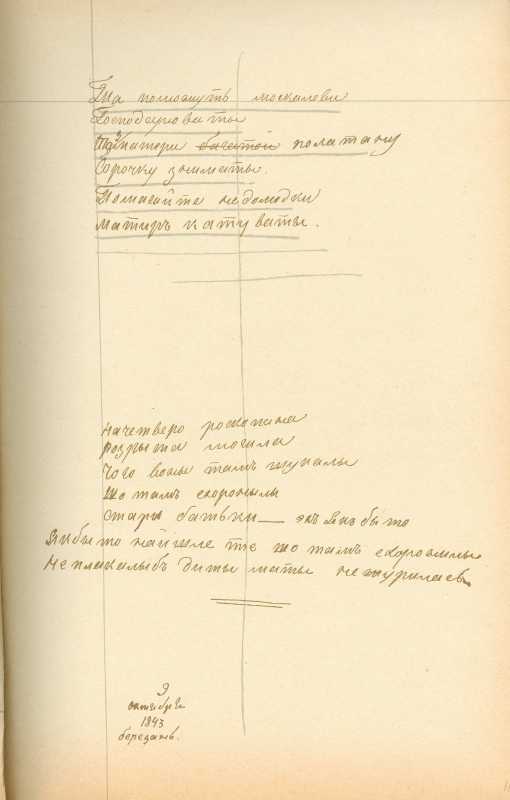 Та поможуть москалеви
Господарюваты
Та з матери багатои полатану
Сорочку знимать.
Помагайте недолюдки
Матиръ катуваты.
Начетверо роскопана
розрыта могила
Чого воны тамъ шукалы
Що тамъ схоронылы
стари батькы — эхъ якъ бы то
Якбы то найшле те що тамъ схоронылы
Неплакалыбъ диты маты нежурылась
9
октября
1843
березань.